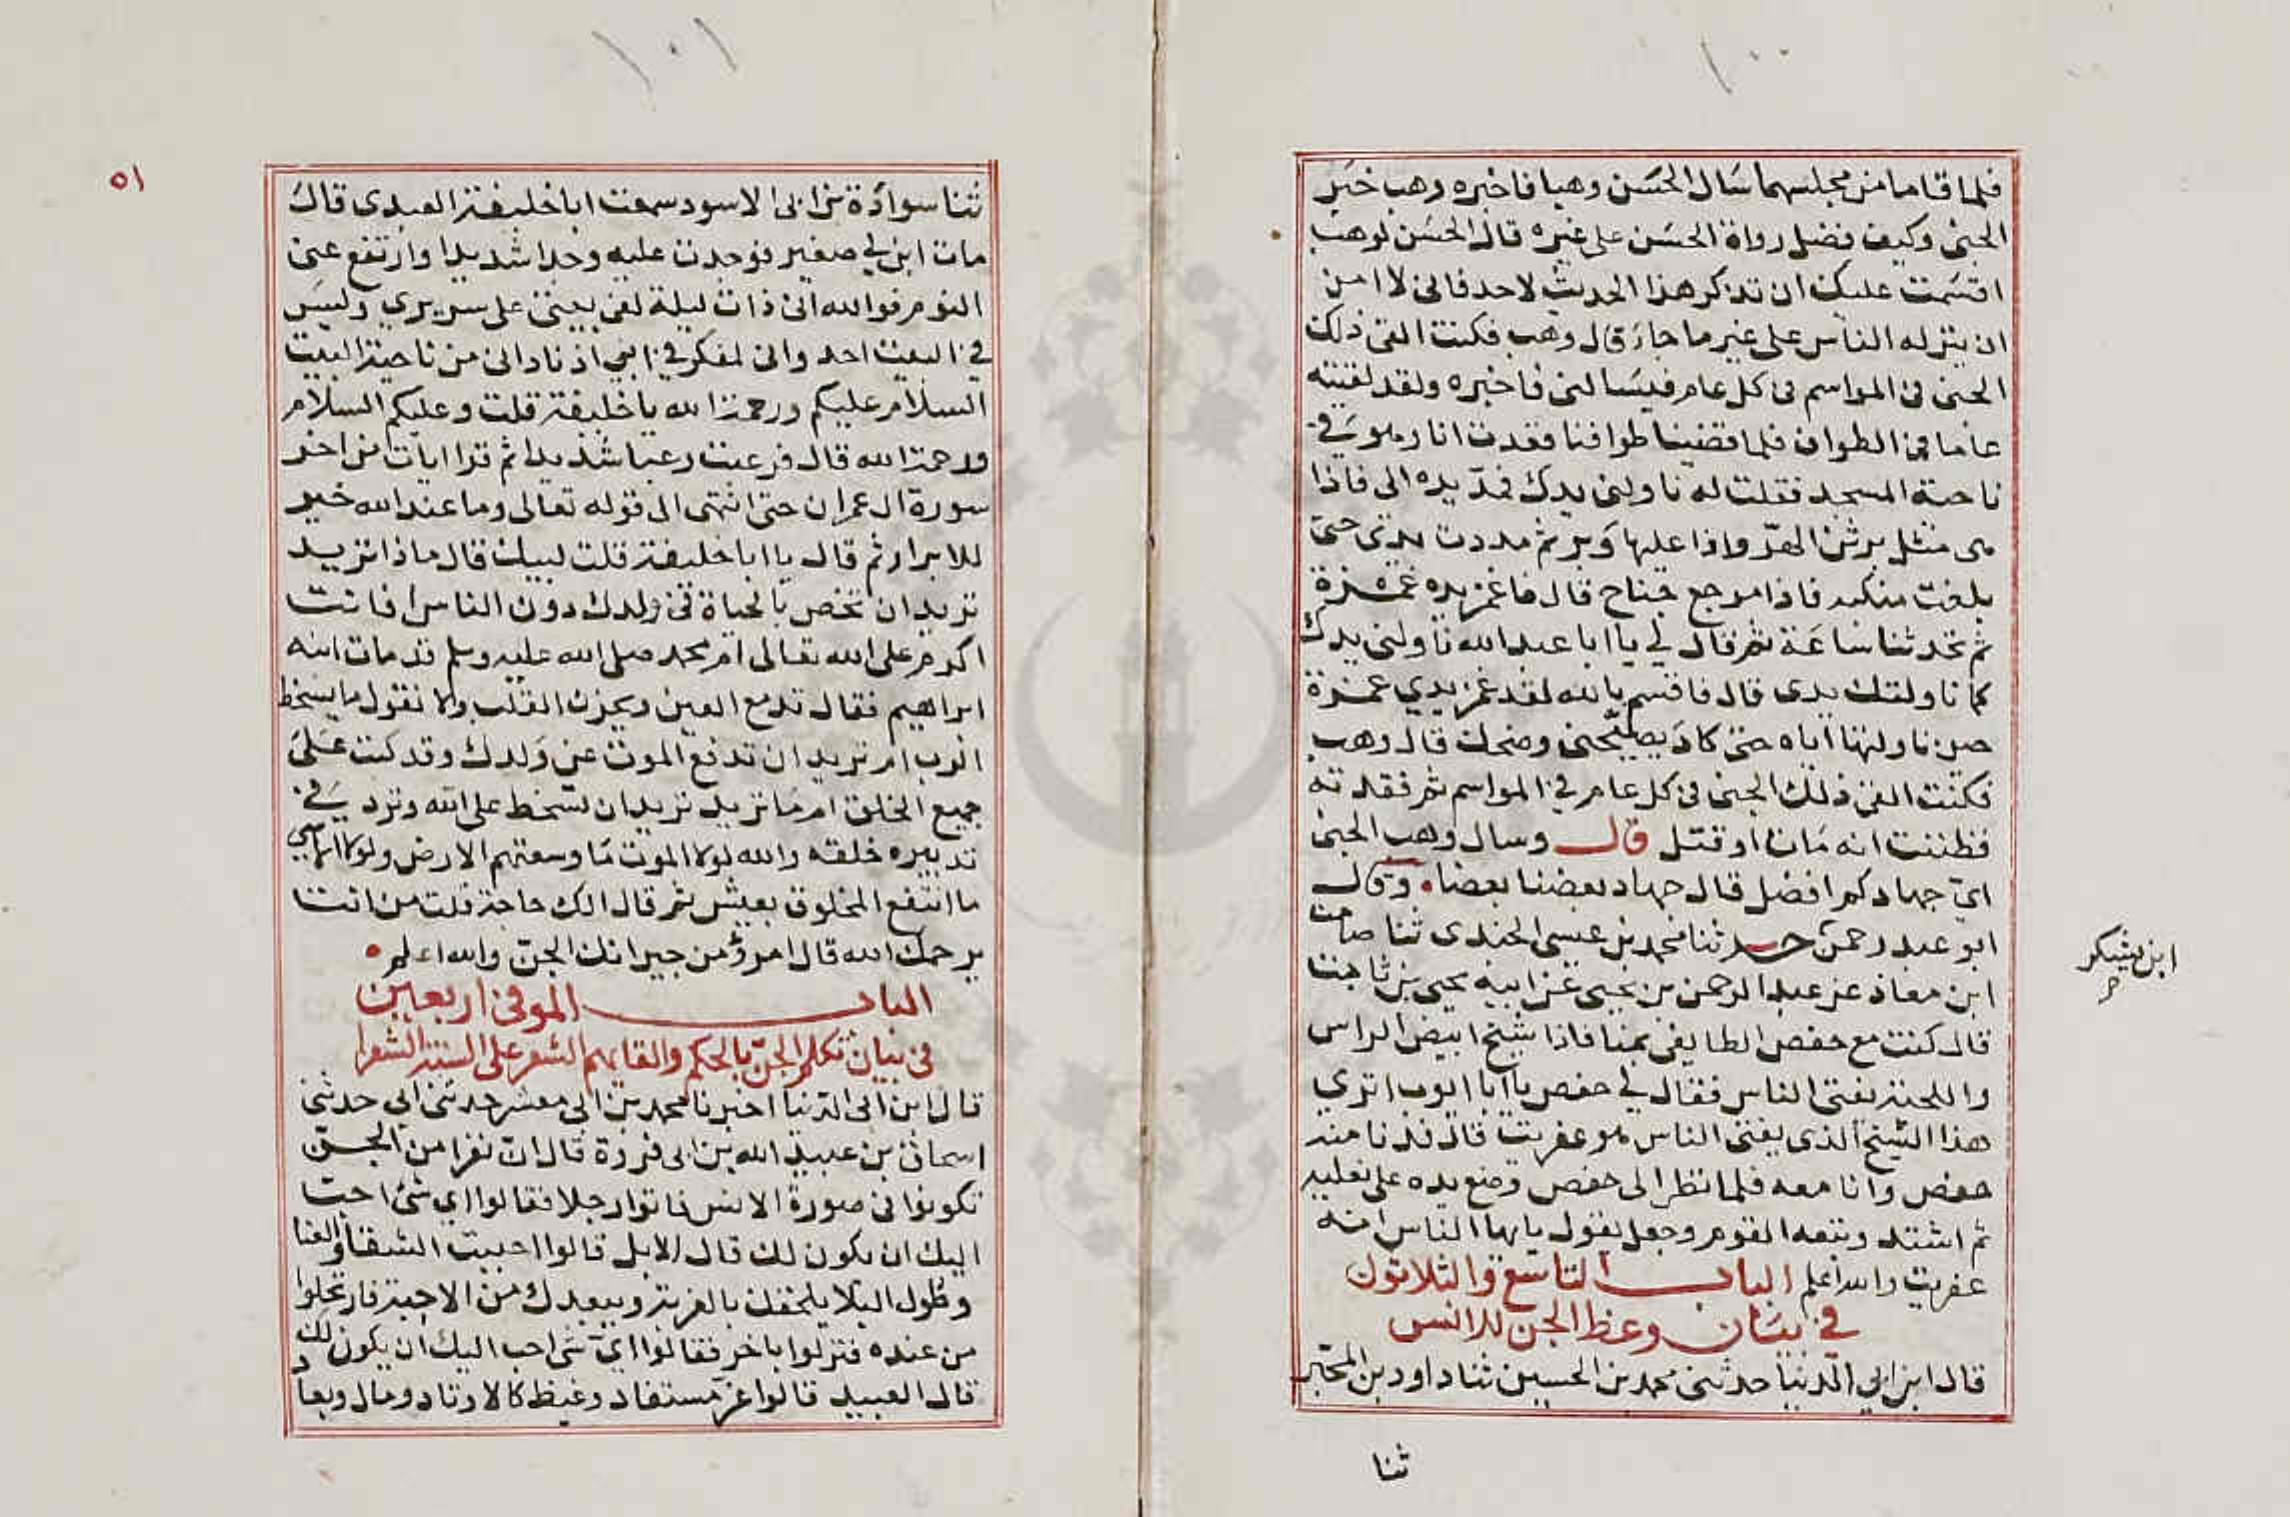 ١٠٠
فلما قاما من مجلسهما سال الحسن وهبا فاخبره وهب خبر
الجنى وكيف فضل رواة الحسن على غيره قال الحسن لوهب
اقسمت عليك ان تذكر هذا الحديث لاحد فانى لا امن
ان ينزله الناس على غير ما جاء قال وهب فكنت القى ذلك
الجنى فى المواسم فى كل عام فيسالنى فاخبره ولقد لقيته
عاما فى الطواف فلما قضينا طوافنا قعدت انا وهو فى
ناحية المسجد فقلت له ناولنى يدك فمد يده الى فاذا
هى مثل برثن الهر واذا عليها وبر ثم مددت يدى حتى
بلغت منكبه فاذا موجع جناح قال فاغمز يده غمزة
ثم تحدثنا ساعة ثم قال لي يا ابا عبد الله ناولنى يدك
كما ناولتك يدى قال فاقسم بالله لقد غمز يدي غمزة
حين ناولتها اياه حتى كاد يصيحنى وضحك قال وهب
فكنت القى ذلك الجنى فى كل عام في المواسم ثم فقدته
فظننت انه مات او قتل قال وسال وهب الجنى
اي جهادكم افضل قال جهاد بعضنا بعضا وقال
ابو عبد رحمن حدثنا محمد بن عيسى الجندى ثنا صامت
ابن معاذ عن عبد الرحمن بن يحيى عن ابيه يحيى بن ثابت
قال كنت مع حفص الطايفى بمنا فاذا شيخ ابيض الراس
واللحية يفتى الناس فقال لي حفص يا ابا ايوب اتري
هذا الشيخ الذى يفتى الناس هو عفريت قال فدنا منه
حفص وانا معه فلما نظر الى حفص وضع يده على نعليه
ثم اشتد وتبعه القوم وجعل يقول يايها الناس انه
عفريت والله اعلم الباب التاسع والثلاثون
في بيان وعظ الجن للانس
قال ابن ابي الدنيا حدثنى محمد بن الحسين ثنا داود بن المحبر
ثنا
ابن يشكر
١٠١
٥١
ثنا سوادة بن ابى الاسود سمعت ابا خليفة العبدى قال
مات ابن لي صغير فوجدت عليه وجدا شديدا وارتفع عنى
النوم فوالله انى ذات ليلة لفى بيتى على سريري وليس
في البيت احد وانى لمفكر في ابني اذ نادانى من ناحية البيت
السلام عليكم ورحمة الله يا خليفة قلت وعليكم السلام
ورحمة الله قال فرعبت رعبا شديدا ثم قرا ايات من اخر
سورة ال عمران حتى انتهى الى قوله تعالى وما عند الله خير
للابرار ثم قال يا ابا خليفة قلت لبيك قال ماذا تريد
تريد ان تخص بالحياة فى ولدك دون الناس افانت
اكرم على الله تعالى ام محمد صلى الله عليه وسلم قد مات ابنه
ابراهيم فقال تدمع العين ويحزن القلب ولا نقول ما يسخط
الرب ام تريد ان تدفع الموت عن ولدك وقد كتب على
جميع الخلق ام ما تريد تريد ان تسخط على الله وترد في
تدبيره خلقه والله لولا الموت ما وسعتهم الارض ولولا الاسى
ما انتفع المخلوق بعيش ثم قال الك حاجة قلت من انت
يرحمك الله قال امرؤ من جيرانك الجن والله اعلم
الباب الموفى اربعين
فى بيان تكلم الجن بالحكم والقايهم الشعر على السنة الشعرا
قال ابن ابى الدنيا اخبرنا محمد بن ابى معشر حدثنى ابي حدثنى
اسحاق بن عبيد الله بن ابى فروة قال ان نفرا من الجن
تكونوا فى صورة الانس فاتوا رجلا فقالوا اي شئ احب
اليك ان يكون لك قال الابل قالوا احببت الشقا والعنا
وطول البلا يلحقك بالغربة ويبعدك من الاحبة فارتحلوا
من عنده فنزلوا باخر فقالوا اي شى احب اليك ان يكون لك
قال العبيد قالوا عز مستفاد وغيظ كالاوتاد ومال وبعاد